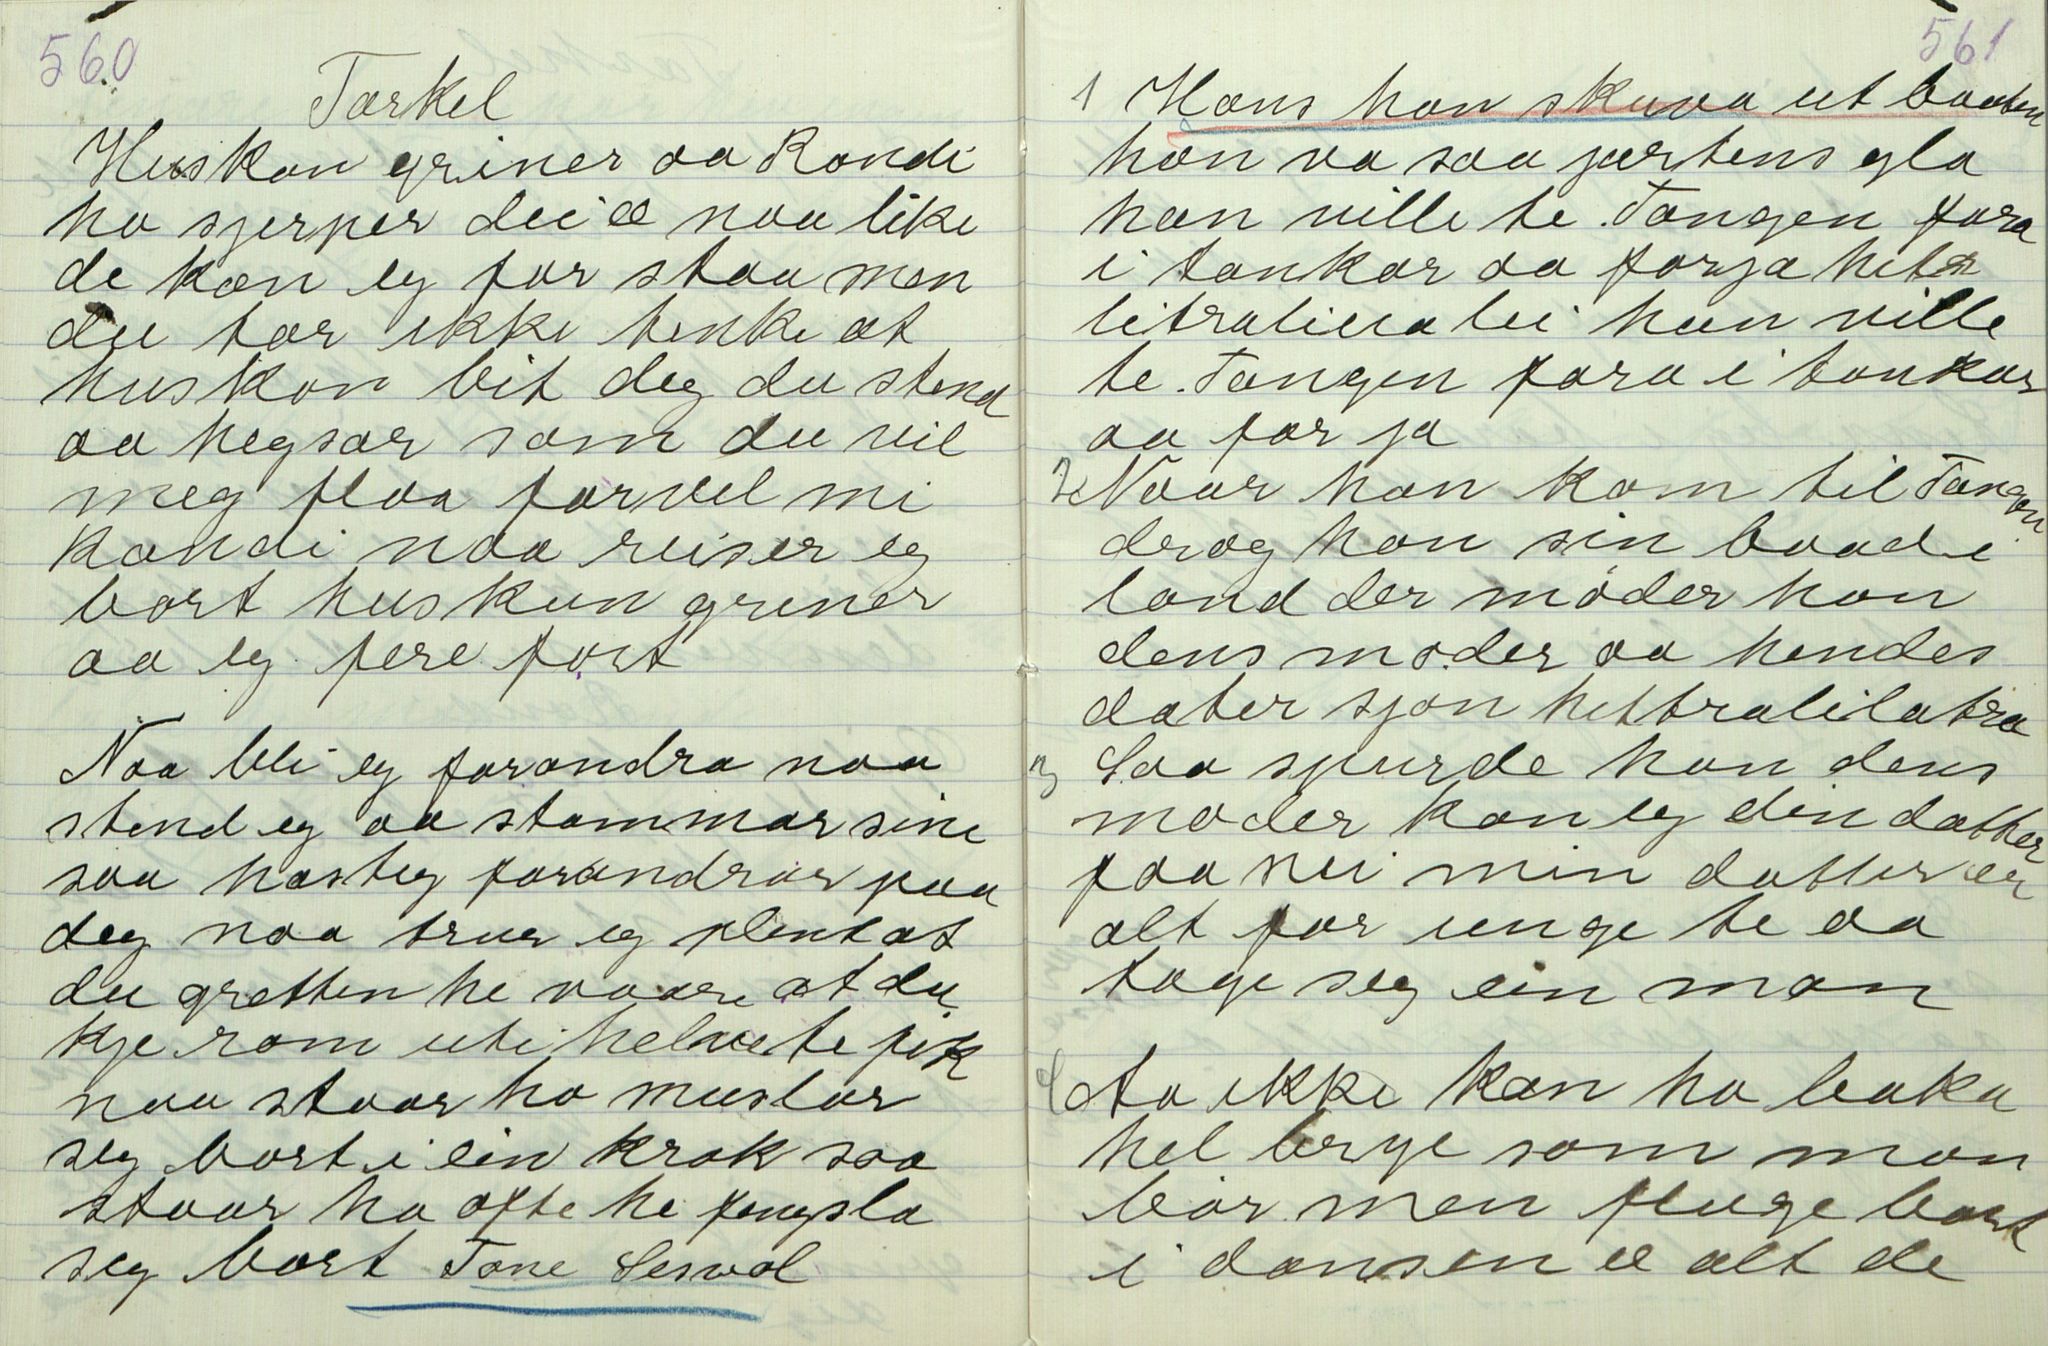 560
Tarkel
Huskan griner aa Kandi
ho sjerper dei æ naa like
de kan eg for staa men
du tar ikke tenke at
huskan bit deg du stend
aa hegsar som du vil
meg flaa farvel mi
Kandi naa reiser eg
bort huskun griner
aa eg fere fort
Naa bli eg forandra naa
stend eg aa stammar sine
saa hasteg forandrar paa
deg naa trur eg plent at
du gretten he vaare at du
kje rom uti helvete fek
naa staar ho muslar
seg bort i ein krok saa
staar ho ofte he fengsla
seg bort Tone
561
1 Hans han skuva ut baaten
han va saa jartens gla
han ville te Tangen fara
i tankar aa forja het
litralilla lei han ville
te Tangen fara i tankar
aa for ja
2 Naar han kom til Tangen
drog han sin baad i
land der møder han
dens moder aa hendes
dater sjøn hettralilatra
3 Saa spurde han dens
moder kan eg din datter
faa nei min datter er
alt for unge te aa
tage seg ein man
4 ta ikke kan ho baka
hel brye som man
bør men fluge bort
i dansen æ alt de